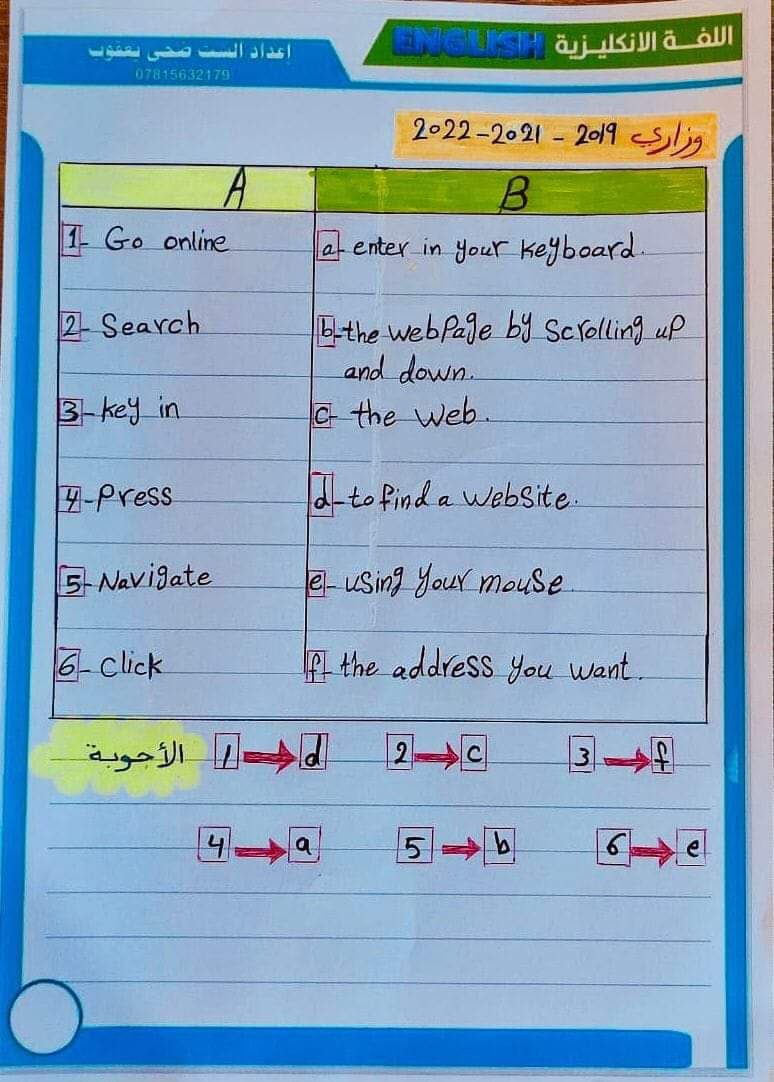 اللغة الانكليزية ENGLISH
إعداد الست ضحى يعقوب
07815632179
وزاري 2019 - 2021-2022
A B
1- Go online a- enter in your keyboard.
2- Search b- the webpage by scrolling up
and down.
3- key in c- the web.
4- Press d- to find a website.
5- Navigate e- using your mouse.
6- Click f- the address you want.
الأجوبة 1 → d 2 → c 3 → f
4 → a 5 → b 6 → e